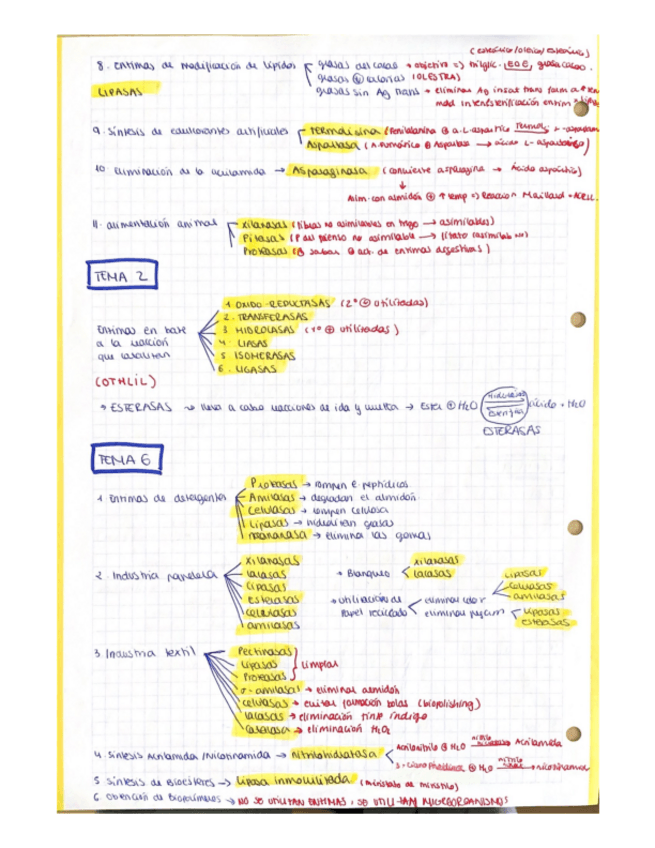 (esteárico/oleico/esteárico)
8. Enzimas de modificación de lípidos
grasas del cacao → objetivo => triglic. LEOE, grasa cacao.
grasas ⊖ calorías (OLESTRA)
LIPASAS
grasas sin Ag trans → eliminar Ag insat trans form a
interesterificación enzim
9. Síntesis de edulcorantes artificiales
Termolisina (Fenilalanina ⊕ a. L-aspártico
Aspartasa (A. Fumárico ⊕ → ácido L-aspártico)
10. Eliminación de la acrilamida → Asparaginasa (convierte asparagina → Ácido aspártico)
Alim. con almidón ⊕ ↑ temp => Reacción Maillard → ACRIL.
11. alimentación animal
Xilanasas (fibras no asimilables en trigo → asimilables)
Fitasas (P del pienso no asimilable → fitato
Proteasas ( act. de enzimas digestivas)
TEMA 2
Enzimas en base
a la reacción
que catalizan
1. OXIDO-REDUCTASAS (2º ⊕ utilizadas)
2. TRANSFERASAS
3. HIDROLASAS (1º ⊕ utilizadas)
4. LIASAS
5. ISOMERASAS
6. LIGASAS
(OTHLIL)
→ ESTERASAS → lleva a cabo reacciones de ida y vuelta → Ester ⊕ H₂O Hidrólisis ácido + H₂O
ESTERASAS
TEMA 6
1. Enzimas de detergentes
Proteasas → rompen e. peptídicos
Amilasas → degradan el almidón
Celulasas → rompen celulosa
Lipasas → hidrolizan grasas
mananasa → elimina las gomas
2. Industria papelera
xilanasas
lacasas
lipasas
esterasas
celulasas
amilasas
→ Blanqueo
xilanasas
lacasas
→ utilización de
papel reciclado
eliminar color
lipasas
celulasas
amilasas
eliminar
lipasas
esterasas
3. Industria textil
Pectinasas
Lipasas
Proteasas
Limpiar
α-amilasas → eliminar almidón
celulasas → evitar formación bolas (biopolishing)
lacasas → eliminación tinte índigo
Catalasa → eliminación H₂O₂
4. Síntesis Acrilamida/Nicotinamida → Nitrilohidratasa
Acrilonitrilo ⊕ H₂O Acrilamida
3-Cianopiridina ⊕ H₂O → nicotinamida
5. Síntesis de Bioésteres → Lipasa inmovilizada (miristato de miristilo)
6. Obtención de Biopolímeros → NO SE UTILIZAN ENZIMAS, SE UTILIZAN MICROORGANISMOS